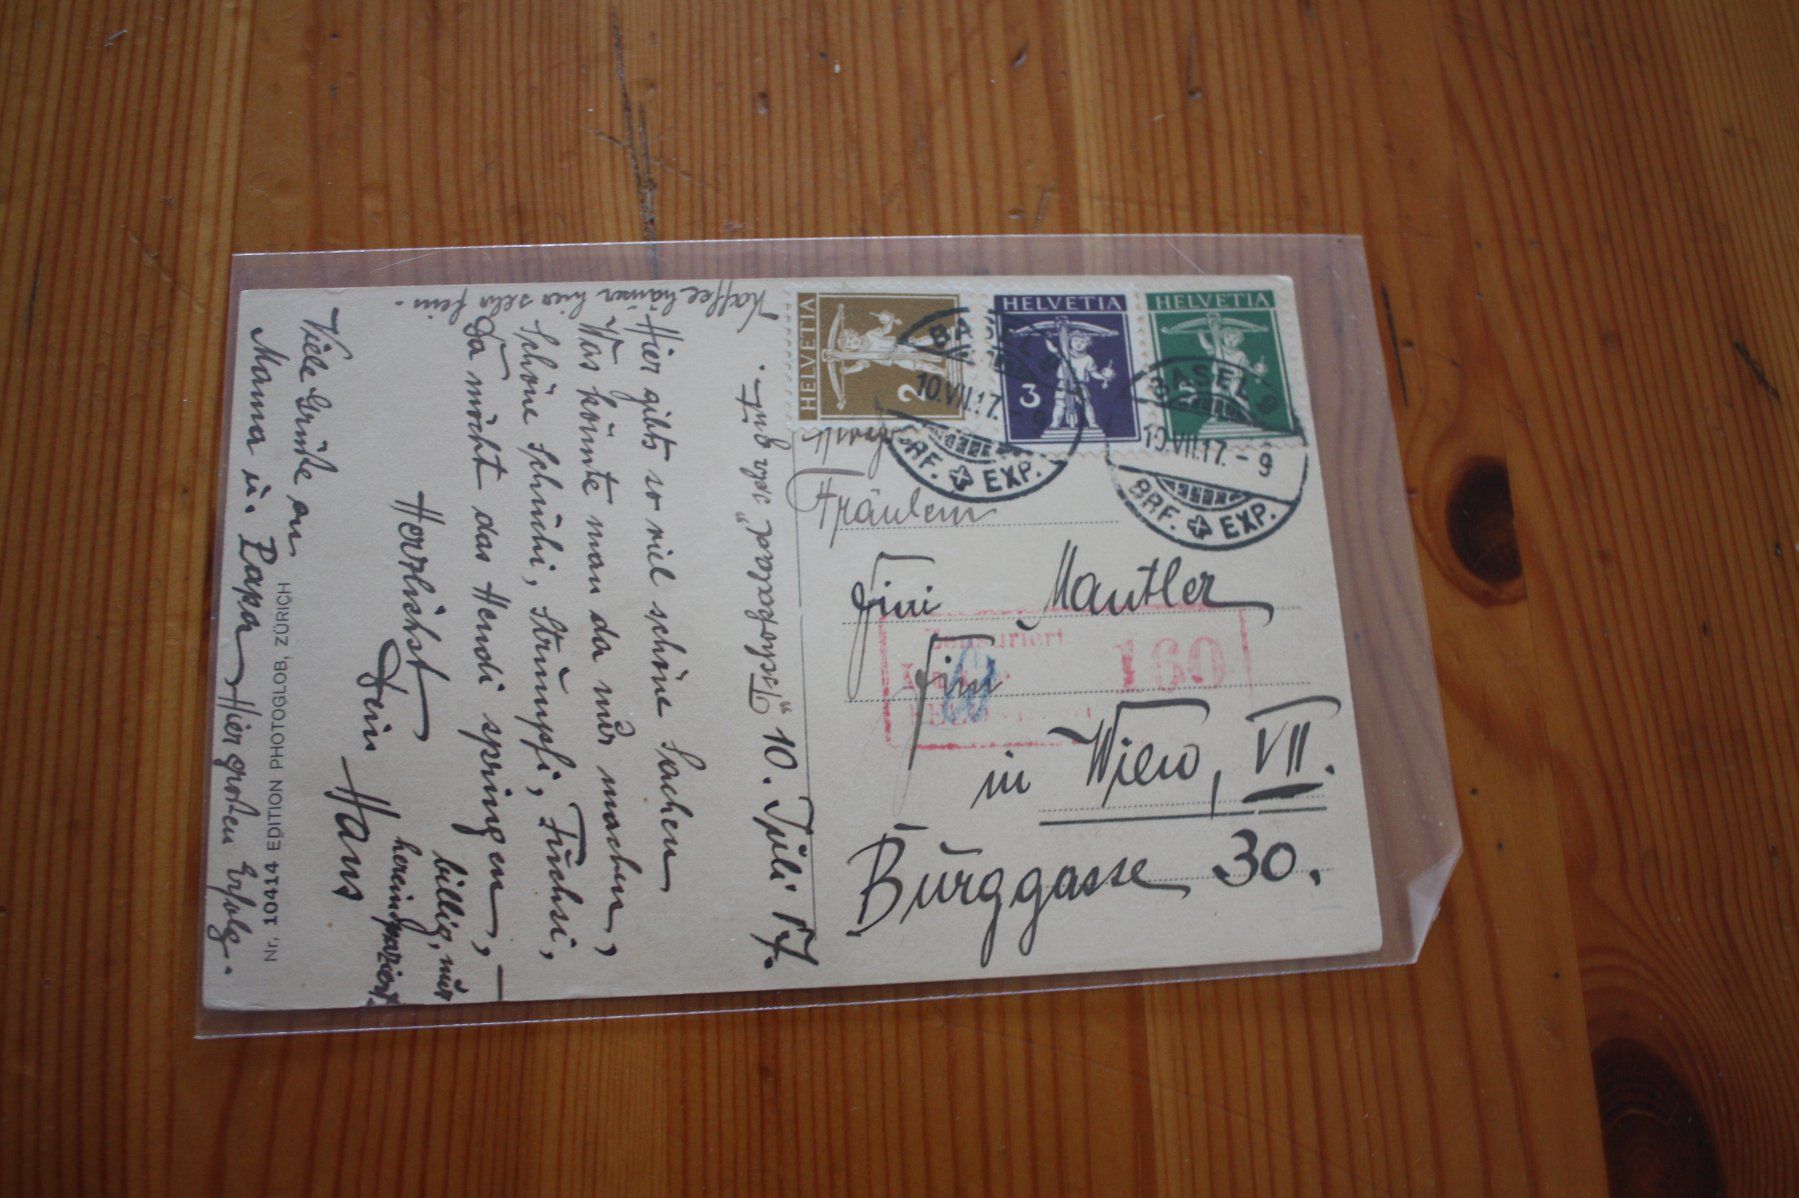 Kaffeehäuser hier sehr fein.
"Tschokolaad" sehr gut.
10. Juli 17.
Hier gibts so viel schöne Sachen
Was könnte man da nur machen,
Schöne Schuhi, Strumpfi, Tuchsi,
Da möcht das Hendi springen, —
billig, nur
hereinspaziert.
Herzlichst
Dein
Hans
Viele Grüße an
Mama u. Papa
Hier großen Erfolg.
Nr. 10414 EDITION PHOTOGLOB, ZÜRICH
HELVETIA
2
HELVETIA
3
HELVETIA
5
BASEL
10.VII.17.
BRF. EXP.
BASEL 9
10.VII.17. - 9
BRF. EXP.
Fräulein
Fini Mautler
Fini
in Wien, VII.
Burggasse 30.
Zensuriert
160